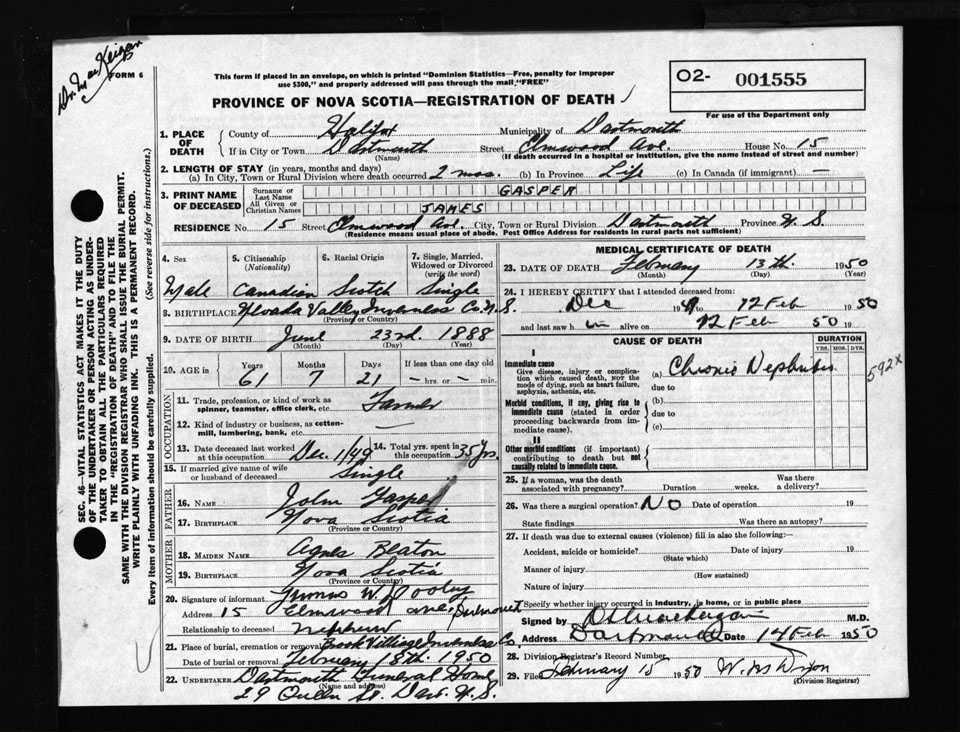 Dr. MacKeigan
FORM 6
This form if placed in an envelope, on which is printed "Dominion Statistics—Free, penalty for improper
use $300," and properly addressed will pass through the mail "FREE"
PROVINCE OF NOVA SCOTIA—REGISTRATION OF DEATH
O2- 001555
For use of the Department only
SEC. 46—VITAL STATISTICS ACT MAKES IT THE DUTY
OF THE UNDERTAKER OR PERSON ACTING AS UNDER-
TAKER TO OBTAIN ALL THE PARTICULARS REQUIRED
IN THE "REGISTRATION OF DEATH" AND TO FILE THE
SAME WITH THE DIVISION REGISTRAR WHO SHALL ISSUE THE BURIAL PERMIT.
WRITE PLAINLY WITH UNFADING INK. THIS IS A PERMANENT RECORD.
Every item of information should be carefully supplied. (See reverse side for instructions.)
1. PLACE OF DEATH
County of Halifax Municipality of Dartmouth
If in City or Town Dartmouth Street Elmwood Ave. House No. 15
(Name) (If death occurred in a hospital or institution, give the name instead of street and number)
2. LENGTH OF STAY (in years, months and days)
(a) In City, Town or Rural Division where death occurred 2 mos. (b) In Province Life (c) In Canada (if immigrant) —
3. PRINT NAME OF DECEASED
Surname or Last Name GASPER
All Given or Christian Names JAMES
RESIDENCE No. 15 Street Elmwood Ave. City, Town or Rural Division Dartmouth Province N.S.
(Residence means usual place of abode. Post Office Address for residents in rural parts not sufficient)
4. Sex 5. Citizenship (Nationality) 6. Racial Origin 7. Single, Married, Widowed or Divorced (write the word)
Male Canadian Scotch Single
8. BIRTHPLACE Nevada Valley Inverness Co. N.S.
(Province or Country)
9. DATE OF BIRTH June 23rd. 1888
(Month) (Day) (Year)
10. AGE in Years Months Days If less than one day old
61 7 21 — hrs. or — min.
OCCUPATION
11. Trade, profession, or kind of work as
spinner, teamster, office clerk, etc. Farmer
12. Kind of industry or business, as cotton-
mill, lumbering, bank, etc. —
13. Date deceased last worked at this occupation Dec. 1/49 14. Total yrs. spent in this occupation 35 yrs.
15. If married give name of wife
or husband of deceased Single
FATHER
16. Name John Gasper
17. Birthplace Nova Scotia
(Province or Country)
MOTHER
18. Maiden Name Agnes Beaton
19. Birthplace Nova Scotia
(Province or Country)
20. Signature of informant Thomas W. Dooley
Address 15 Elmwood Ave, Dartmouth
Relationship to deceased nephew
21. Place of burial, cremation or removal Brook Village Inverness Co.
Date of burial or removal February 15th. 1950
22. UNDERTAKER Dartmouth Funeral Home
(Name and address)
29 Queen St. Dart. N.S.
MEDICAL CERTIFICATE OF DEATH
23. DATE OF DEATH February 13th. 1950
(Month) (Day) (Year)
24. I HEREBY CERTIFY that I attended deceased from:
Dec 49 to 12 Feb 1950
and last saw him alive on 12 Feb 50 19
CAUSE OF DEATH
DURATION
YRS. MOS. DYS.
I
Immediate cause
Give disease, injury or complica-
tion which caused death, NOT the
mode of dying, such as heart failure,
asphyxia, asthenia, etc.
(a) Chronic Nephritis
592x
due to
Morbid conditions, if any, giving rise to
immediate cause (stated in order
proceeding backwards from im-
mediate cause).
(b)
due to
(c)
II
Other morbid conditions (if important)
contributing to death but not
causally related to immediate cause.
25. If a woman, was the death
associated with pregnancy? Duration weeks. Was there a delivery?
26. Was there a surgical operation? NO Date of operation 19
State findings Was there an autopsy?
27. If death was due to external causes (violence) fill in also the following:—
Accident, suicide or homicide? Date of injury 19
(State which)
Manner of injury
(How sustained)
Nature of injury
Specify whether injury occurred in industry, in home, or in public place
Signed by M.D.
Address Dartmouth Date 14 Feb 1950
28. Division Registrar's Record Number
29. Filed February 15 1950 Dixon
(Division Registrar)